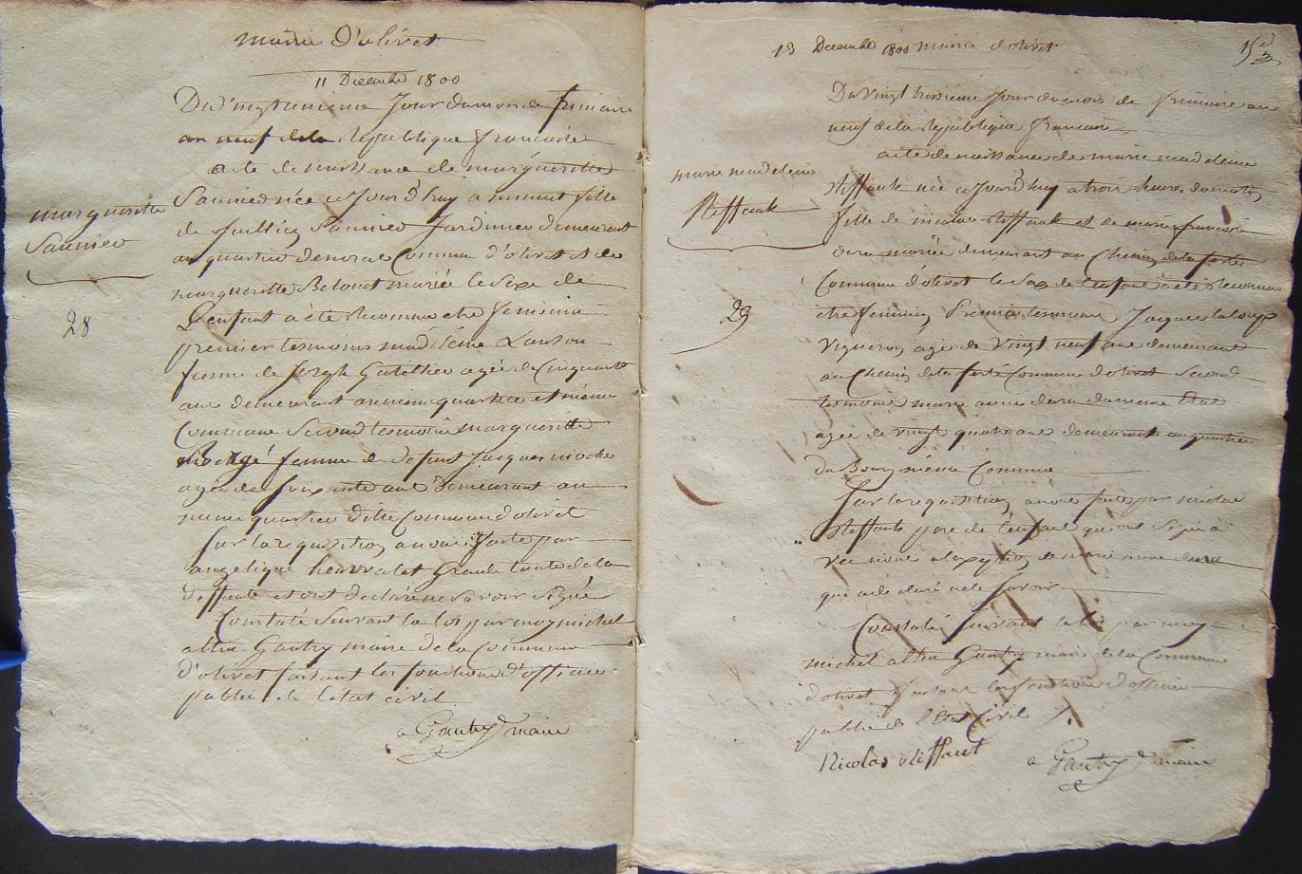 mairie D'olivet
11 Decembre 1800
Du vingtunieme Jour du mois de frimaire
an neuf de la Republique francaise
acte de naissance de margueritte
Saunier née ce Jourd'huy a minuit fille
de Saunier Jardinier demeurant
au quartier Commune d'olivet et de
marguerite mariée le Sexe de
L'enfant a été Reconnu etre feminin
premier temoins
femme de Joseph agée de Cinquante
ans demeurant au meme quartier et même
Commune Second temoin marguerite
femme de defunt Jacques
agée de ans demeurant au
meme quartier dite Commune d'olivet
sur la requisition a nous faite par
angelique
et ont declaré ne savoir Signé
Constaté Suivant la loi par moy michel
altin Gautry maire de la Commune
d'olivet faisant les fonctions d'officier
public de l'etat civil
a Gautry maire
marguerite
Saunier
28
13 Decembre 1800 mairie d'olivet
Du Vingt Jour du mois de frimaire an
neuf de la Republique francaise
acte de naissance de marie madeleine
Riffault née ce Jourd'huy a trois heures du matin
fille de nicolas Riffault et de marie francoise
mariée demeurant au Chemin de la ferté
Commune d'olivet le Sexe de l'enfant a été Reconnu
etre feminin Premier temoin Jacques
Vigneron agé de Vingt neuf ans demeurant
au Chemin de la ferté Commune d'olivet Second
temoin marie anne du meme Etat
agée de vingt quatre ans demeurant au quartier
du Bourg meme Commune
Sur la requisition a nous faite par nicolas
Riffault pere de l'enfant qui ont Signé a
vec nous a l'exception de marie anne
qui a declaré ne le Savoir
Constaté Suivant la loi par moy
michel altin Gautry maire de la Commune
d'olivet faisant les fonctions d'officier
public de l'Etat Civil
Nicolas Riffault
a Gautry maire
marie madeleine
Riffault
29